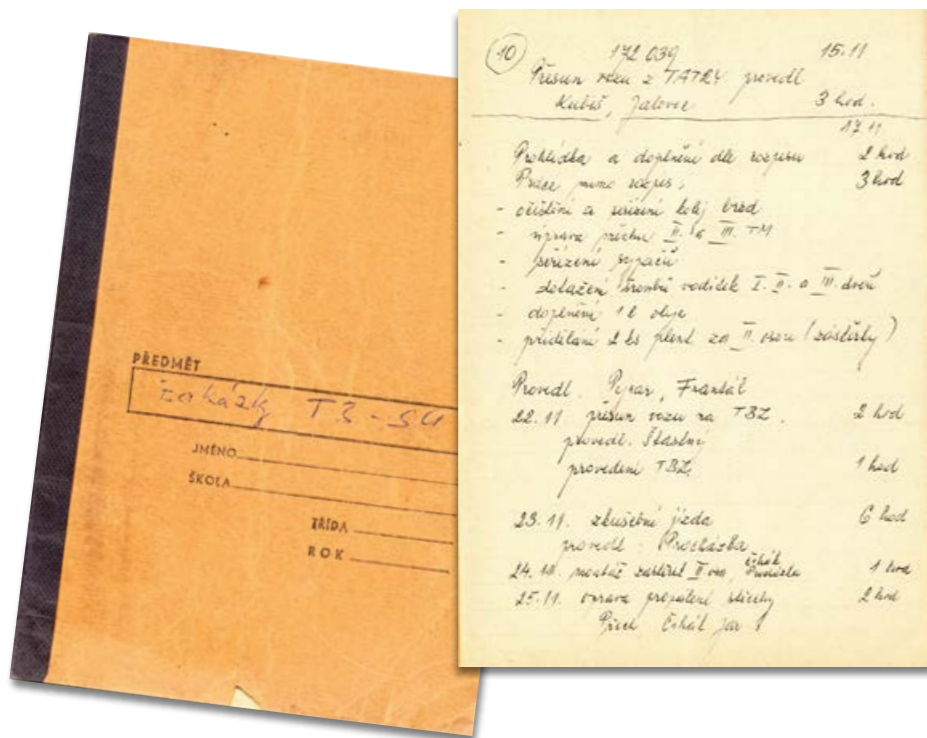 PŘEDMĚT
Zakázky T3-SU
JMÉNO
ŠKOLA
TŘÍDA
ROK
10 172 039 15.11
Přesun vozu z TATRY provedl
Kubiš, Jalovec 3 hod.
17.11
Prohlídka a doplnění dle rozpisu 2 hod
Práce mimo rozpis: 3 hod
- očištění a seřízení kolej brzd
- úprava II. a III. TM
- seřízení sypačů
- dotažení šroubů vodítek I. II. a III. dveří
- doplnění 1 l oleje
- přidělání 2 ks plent za II. osou (zástěrky)
Provedl. Frantál
22.11 přesun vozu na TBZ. 2 hod
provedl. Šťastný
provedení TBZ. 1 hod
23.11. zkušební jízda 6 hod
provedl: Procházka
24.11. montáž zástěrek II oso, 1 hod
25.11. oprava propálení 2 hod